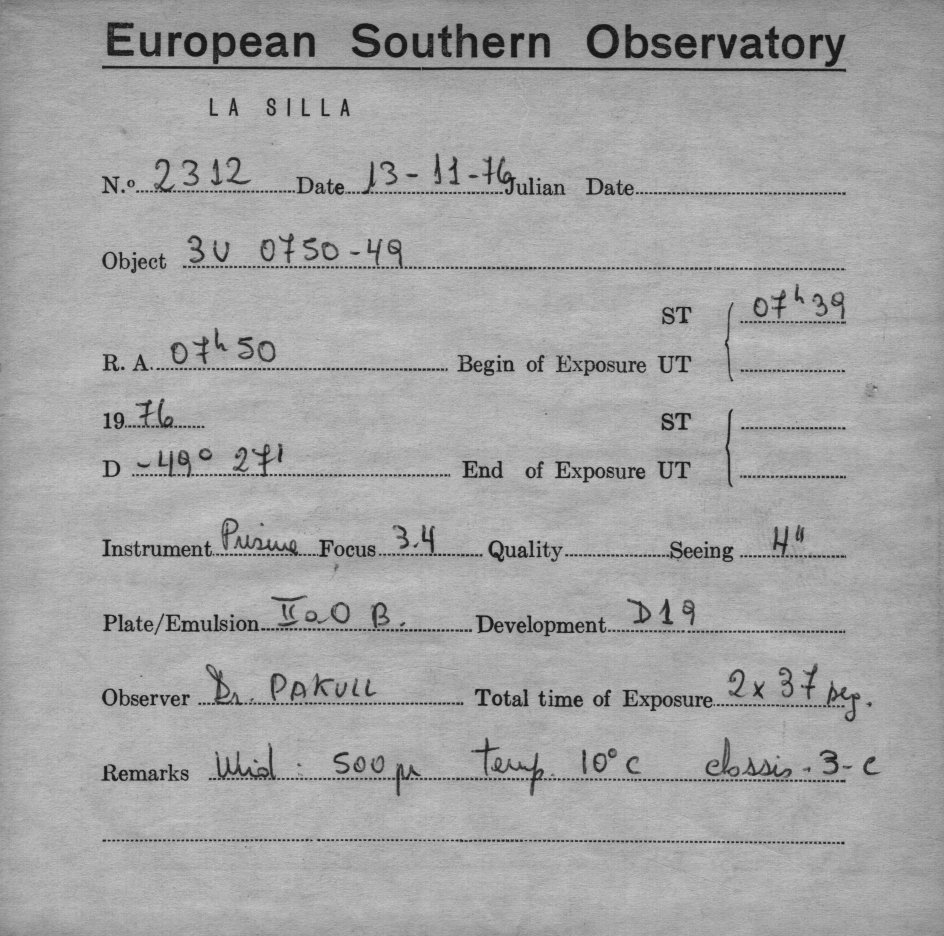 European Southern Observatory
LA SILLA
N.º 2312 Date 13-11-76 Julian Date
Object 3U 0750-49
ST 07h 39
R. A. 07h 50 Begin of Exposure UT
1976 ST
D -49° 27' End of Exposure UT
Instrument Prisme Focus 3.4 Quality Seeing 4"
Plate/Emulsion IIaO B. Development D19
Observer Dr. PAKULL Total time of Exposure 2x37 seg.
Remarks Wid : 500 μ temp. 10°C chassis. 3-C